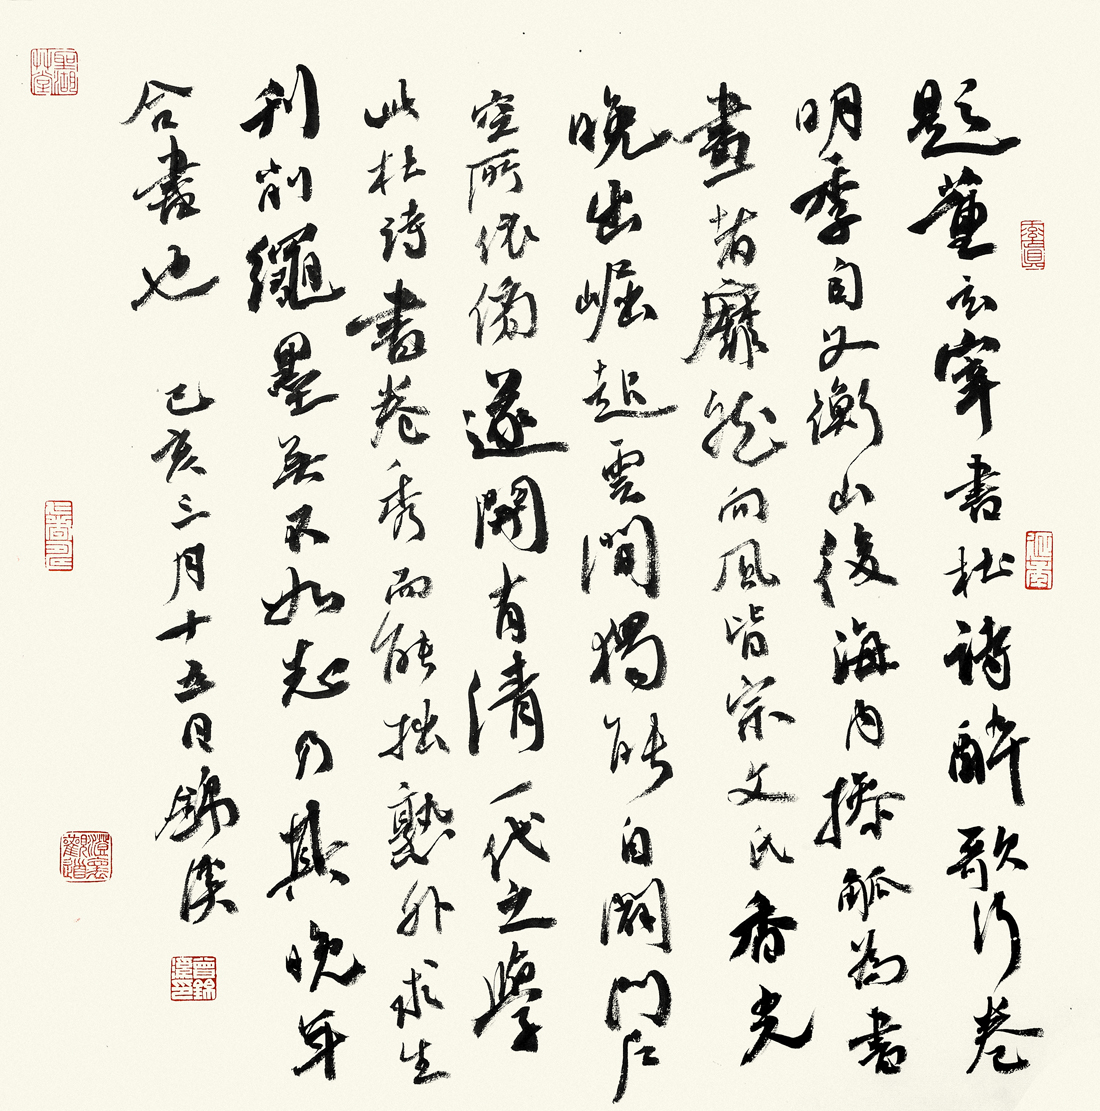 題董玄宰書杜詩醉歌行卷
明季自文衡山後海內操觚為書
畫者靡然向風皆宗文氏香光
晚出崛起雲間獨能自闢門戶
空所依傍遂開有清一代之學
此杜詩書卷秀而能拙熟外求生
刊削繩墨無不如志乃其晚年
合書也
己亥三月十五日錦溪